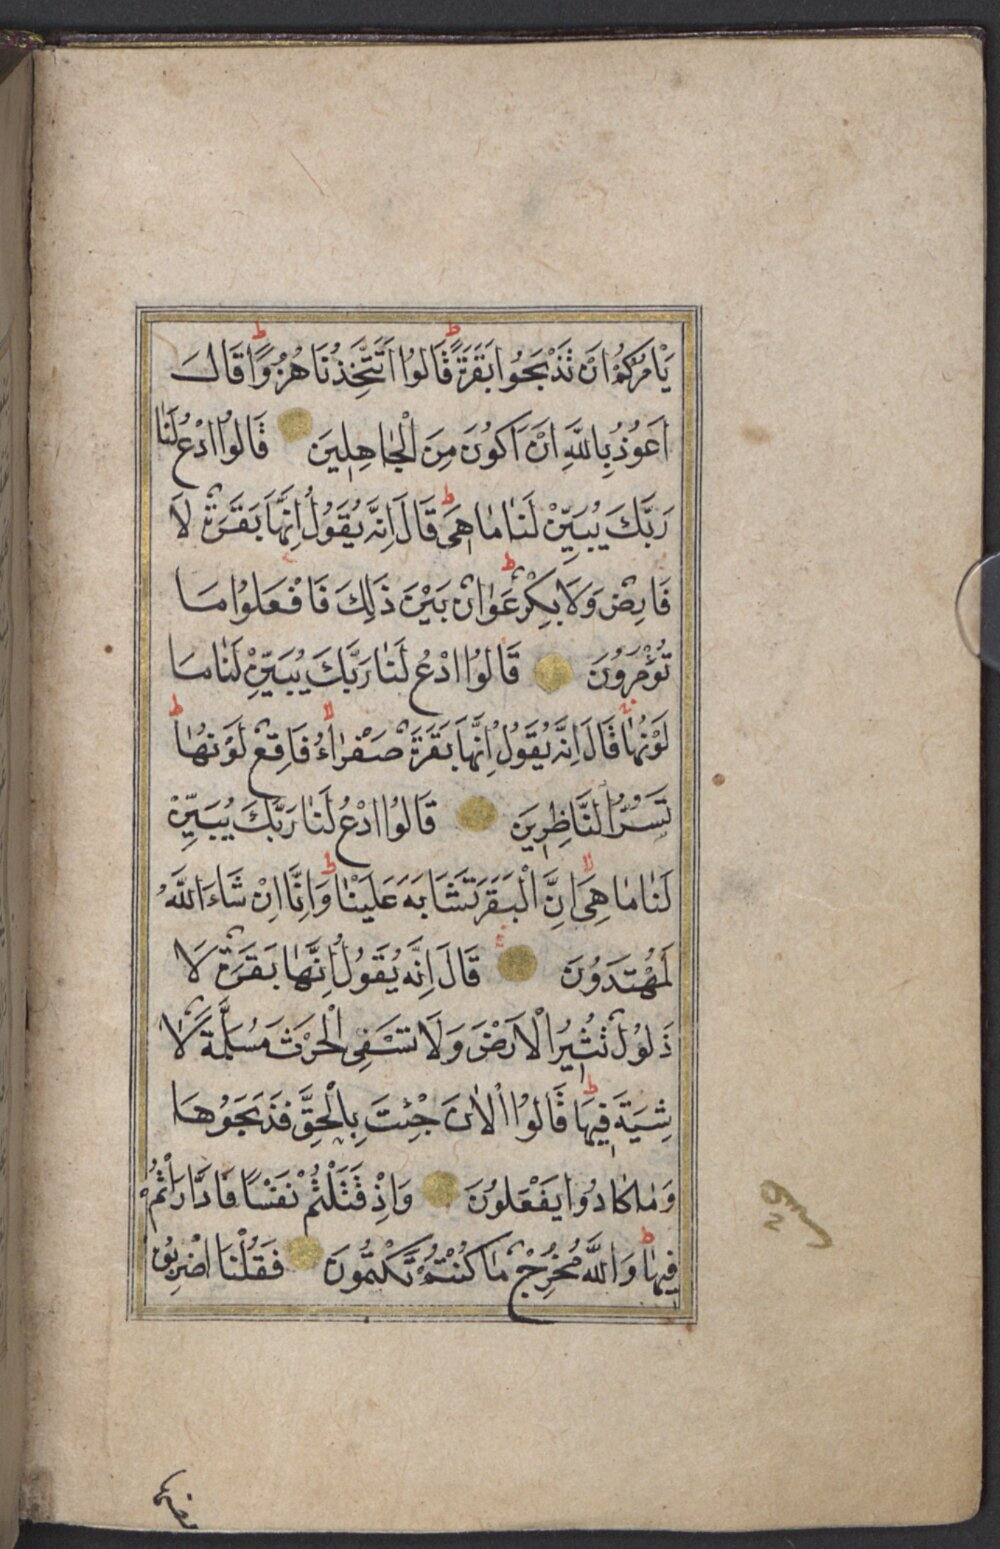 يَأْمُرُكُمْ اَنْ تَذْبَحُوا بَقَرَةً قَالُوا اَتَتَّخِذُنَا هُزُوًا قَالَ
اَعُوذُ بِاللّٰهِ اَنْ اَكُونَ مِنَ الْجَاهِلِينَ قَالُوا ادْعُ لَنَا
رَبَّكَ يُبَيِّنْ لَنَا مَا هِيَ قَالَ اِنَّهُ يَقُولُ اِنَّهَا بَقَرَةٌ لَا
فَارِضٌ وَلَا بِكْرٌ عَوَانٌ بَيْنَ ذٰلِكَ فَافْعَلُوا مَا
تُؤْمَرُونَ قَالُوا ادْعُ لَنَا رَبَّكَ يُبَيِّنْ لَنَا مَا
لَوْنُهَا قَالَ اِنَّهُ يَقُولُ اِنَّهَا بَقَرَةٌ صَفْرَاءُ فَاقِعٌ لَوْنُهَا
تَسُرُّ النَّاظِرِينَ قَالُوا ادْعُ لَنَا رَبَّكَ يُبَيِّنْ
لَنَا مَا هِيَ اِنَّ الْبَقَرَ تَشَابَهَ عَلَيْنَا وَاِنَّا اِنْ شَاءَ اللّٰهُ
لَمُهْتَدُونَ قَالَ اِنَّهُ يَقُولُ اِنَّهَا بَقَرَةٌ لَا
ذَلُولٌ تُثِيرُ الْاَرْضَ وَلَا تَسْقِي الْحَرْثَ مُسَلَّمَةٌ لَا
شِيَةَ فِيهَا قَالُوا الْاٰنَ جِئْتَ بِالْحَقِّ فَذَبَحُوهَا
وَمَا كَادُوا يَفْعَلُونَ وَاِذْ قَتَلْتُمْ نَفْسًا فَادَّارَأْتُمْ
فِيهَا وَاللّٰهُ مُخْرِجٌ مَا كُنْتُمْ تَكْتُمُونَ فَقُلْنَا اضْرِبُوهُ